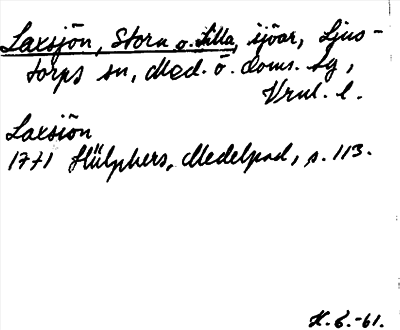 Laxsjön, Stora o. Lilla, sjöar, Ljus-
torps sn, Med. ö. doms. sg,
Vrul. l.
Laxsiön
1771 Hülphers, Medelpad, s. 113.
K. E. -61.